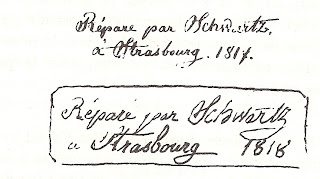 Réparé par Schwartz,
à Strasbourg. 1817.
Réparé par Schwartz
a Strasbourg 1818